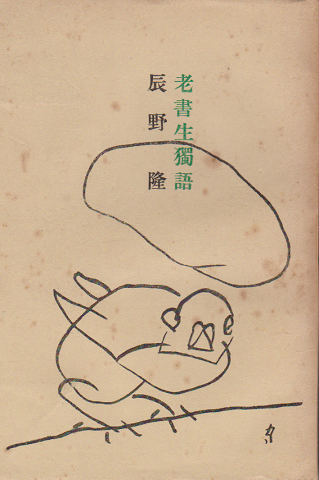 老書生獨語
辰野隆